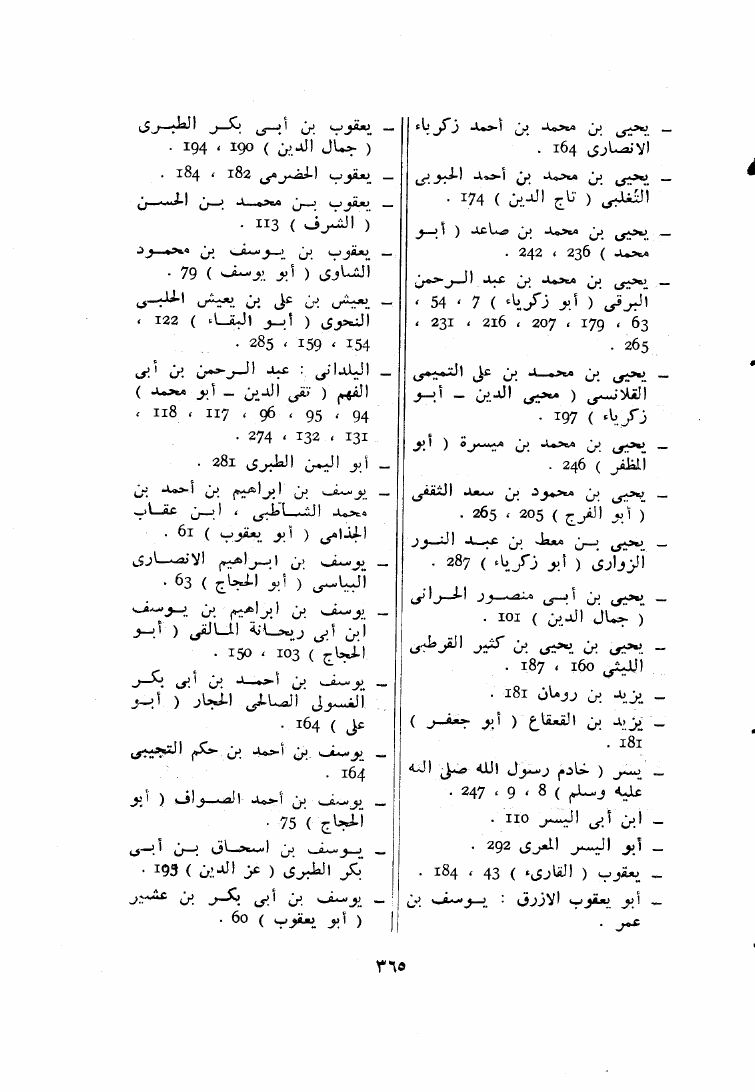 ـ يحيى بن محمد بن أحمد زكرياء
الانصارى 164 .
ـ يحيى بن محمد بن أحمد الحبوبى
الثغلبى ( تاج الدين ) 174 .
ـ يحيى بن محمد بن صاعد ( أبو
محمد ) 236 ، 242 .
ـ يحيى بن محمد بن عبد الرحمن
البرقى ( أبو زكرياء ) 7 ، 54 ،
63 ، 179 ، 207 ، 216 ، 231 ،
265 .
ـ يحيى بن محمد بن على التميمى
القلانسى ( محيى الدين ـ أبو
زكرياء ) 197 .
ـ يحيى بن محمد بن ميسرة ( أبو
المظفر ) 246 .
ـ يحيى بن محمود بن سعد الثقفى
( أبو الفرج ) 205 ، 265 .
ـ يحيى بن معط بن عبد النور
الزوارى ( أبو زكرياء ) 287 .
ـ يحيى بن أبى منصور الحرانى
( جمال الدين ) 101 .
ـ يحيى بن يحيى بن كثير القرطبى
الليثى 160 ، 187 .
ـ يزيد بن رومان 181 .
ـ يزيد بن القعقاع ( أبو جعفر )
181 .
ـ يسر ( خادم رسول الله صلى الله
عليه وسلم ) 8 ، 9 ، 247 .
ـ ابن أبى اليسر 110 .
ـ أبو اليسر المعرى 292 .
ـ يعقوب ( القارىء ) 43 ، 184 .
ـ أبو يعقوب الازرق : يوسف بن
عمر .
ـ يعقوب بن أبى بكر الطبرى
( جمال الدين ) 190 ، 194 .
ـ يعقوب الحضرمى 182 ، 184 .
ـ يعقوب بن محمد بن الحسن
( الشرف ) 113 .
ـ يعقوب بن يوسف بن محمود
الشاوى ( أبو يوسف ) 79 .
ـ يعيش بن على بن يعيش الحلبى
النحوى ( أبو البقاء ) 122 ،
154 ، 159 ، 285 .
ـ اليلدانى : عبد الرحمن بن أبى
الفهم ( تقى الدين ـ أبو محمد )
94 ، 95 ، 96 ، 117 ، 118 ،
131 ، 132 ، 274 .
ـ أبو اليمن الطبرى 281 .
ـ يوسف بن ابراهيم بن أحمد بن
محمد الشاطبى ، ابن عقاب
الجذامى ( أبو يعقوب ) 61 .
ـ يوسف بن ابراهيم الانصارى
البياسى ( أبو الحجاج ) 63 .
ـ يوسف بن ابراهيم بن يوسف
ابن أبى ريحانة المالقى ( أبو
الحجاج ) 103 ، 150 .
ـ يوسف بن أحمد بن أبى بكر
الفسولى الصالحى الحجار ( أبو
على ) 164 .
ـ يوسف بن أحمد بن حكم التجيبى
164 .
ـ يوسف بن أحمد الصواف ( أبو
الحجاج ) 75 .
ـ يوسف بن اسحاق بن أبى
بكر الطبرى ( عز الدين ) 193 .
ـ يوسف بن أبى بكر بن عشير
( أبو يعقوب ) 60 .
٣٦٥